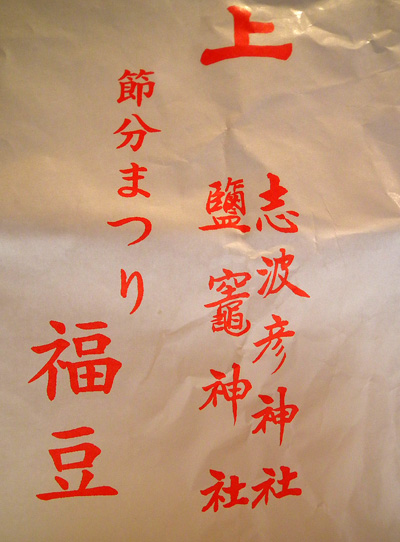 上
志波彦神社
鹽竈神社
節分まつり
福豆